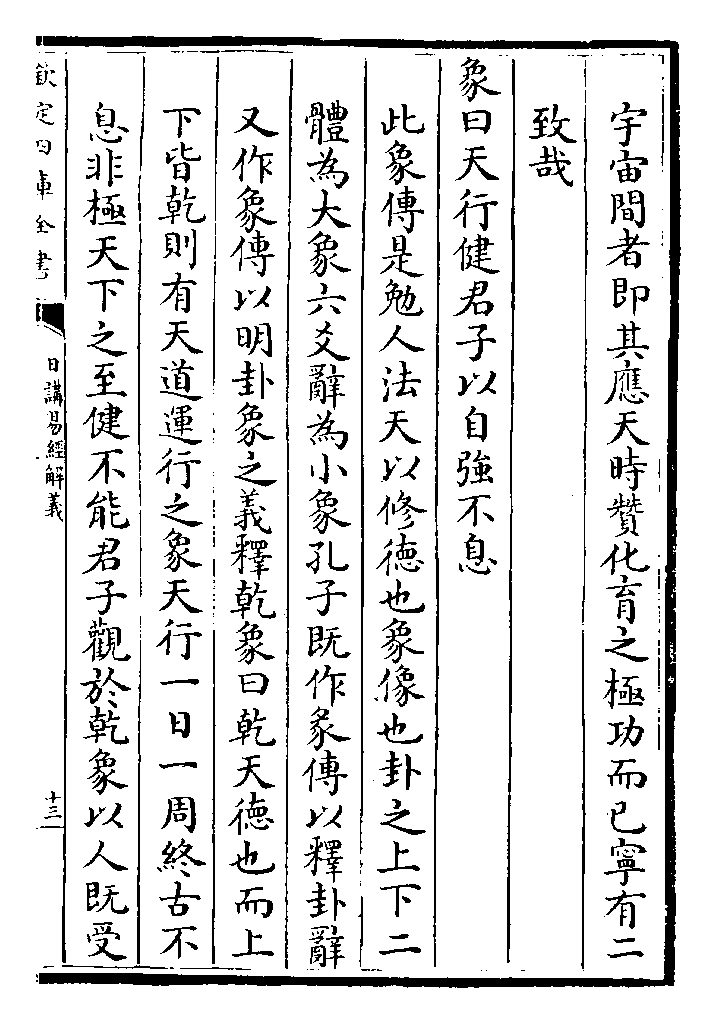 宇宙間者即其應天時贊化育之極功而已寧有二
致哉
象曰天行健君子以自強不息
此象傳是勉人法天以修德也象像也卦之上下二
體為大象六爻辭為小象孔子既作彖傳以釋卦辭
又作象傳以明卦象之義釋乾象曰乾天德也而上
下皆乾則有天道運行之象天行一日一周終古不
息非極天下之至健不能君子觀於乾象以人既受
欽定四庫全書
日講易經解義
十三